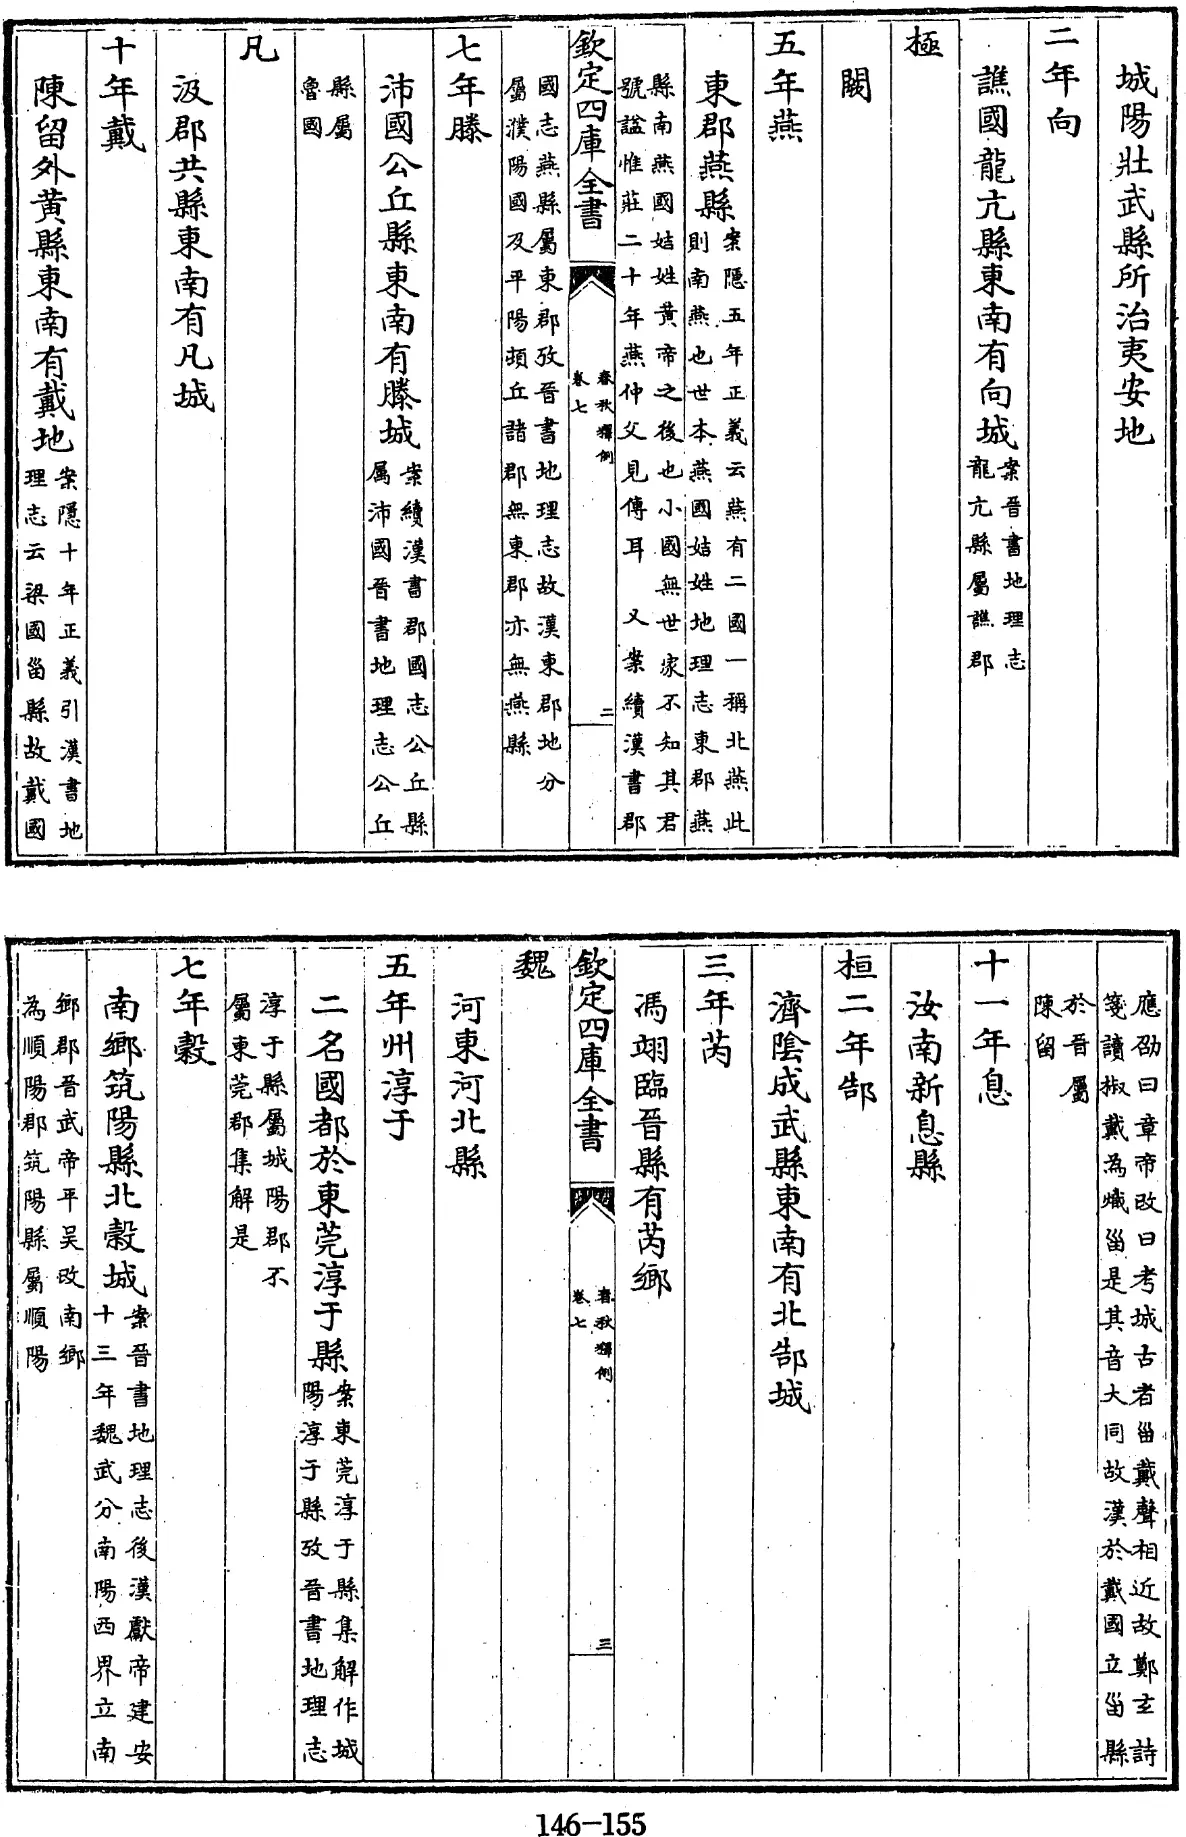 城陽壯武縣所治夷安地
二年向
譙國龍亢縣東南有向城案晉書地理志龍亢縣屬譙郡
極
闕
五年燕
東郡燕縣案隱五年正義云燕有二國一稱北燕此則南燕也世本燕國姞姓地理志東郡燕
縣南燕國姞姓黃帝之後也小國無世家不知其君號諡惟莊二十年燕仲父見傳耳 又案續漢書郡
欽定四庫全書 春秋釋例 卷七 二
國志燕縣屬東郡攷晉書地理志故漢東郡地分屬濮陽國及平陽頓丘諸郡無東郡亦無燕縣
七年滕
沛國公丘縣東南有滕城案續漢書郡國志公丘縣屬沛國晉書地理志公丘
縣屬魯國
凡
汲郡共縣東南有凡城
十年戴
陳留外黃縣東南有戴地案隱十年正義引漢書地理志云梁國甾縣故戴國
應劭曰章帝改曰考城古者甾戴聲相近故鄭玄詩箋讀椒戴為熾甾是其音大同故漢於戴國立甾縣
於晉屬陳留
十一年息
汝南新息縣
桓二年郜
濟陰成武縣東南有北郜城
三年芮
馮翊臨晉縣有芮鄉
欽定四庫全書 春秋釋例 卷七 三
魏
河東河北縣
五年州淳于
二名國都於東莞淳于縣案東莞淳于縣集解作城陽淳于縣攷晉書地理志
淳于縣屬城陽郡不屬東莞郡集解是
七年穀
南鄉筑陽縣北穀城案晉書地理志後漢獻帝建安十三年魏武分南陽西界立南
鄉郡晉武帝平吳改南鄉為順陽郡筑陽縣屬順陽
146-155